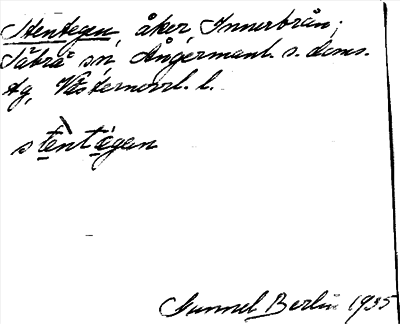 Stentegen, åker, Innerbrån;
Säbrå sn Ångermanl. s. doms.
Ag, Västernorrl. l.
stèntégen
Gunnel Berlin 1935